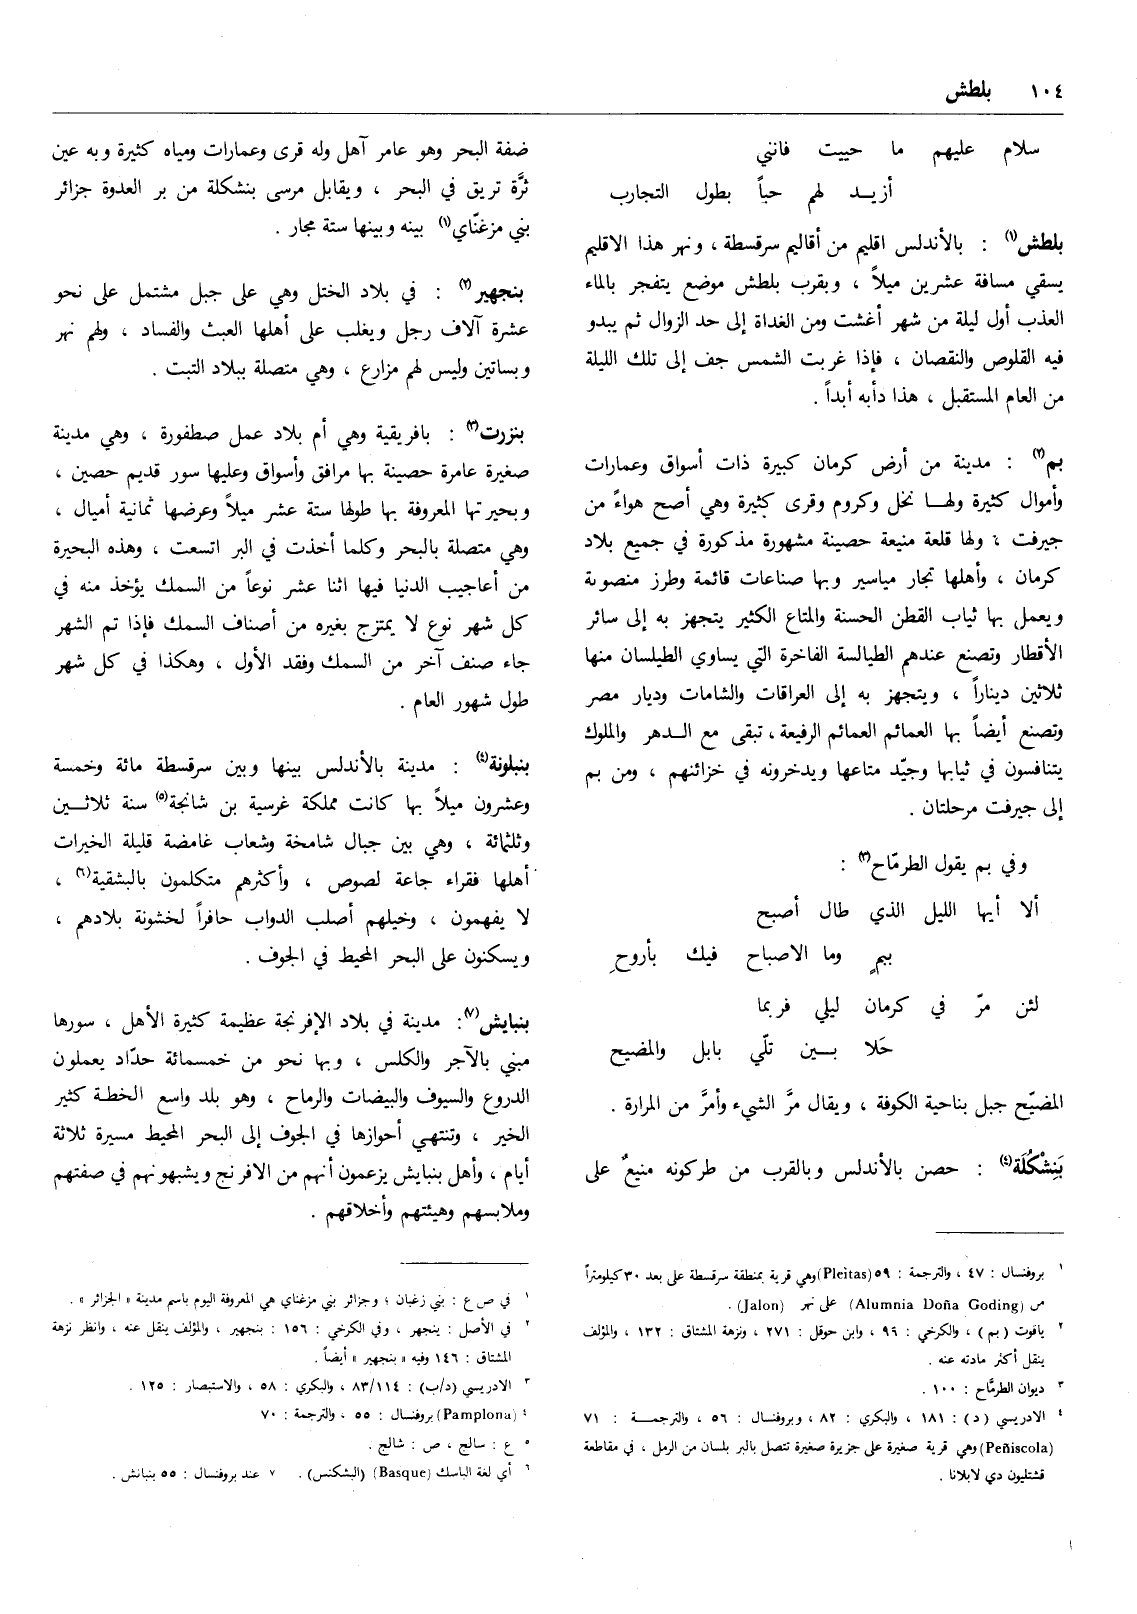 ١٠٤ بلطش
سلام عليهم ما حييت فانني
أزيد لهم حباً بطول التجارب
بلطش (١) : بالأندلس اقليم من أقاليم سرقسطة ، ونهر هذا الاقليم
يسقي مسافة عشرين ميلاً ، وبقرب بلطش موضع يتفجر بالماء
العذب أول ليلة من شهر أغشت ومن الغداة إلى حد الزوال ثم يبدو
فيه القلوص والنقصان ، فإذا غربت الشمس جف إلى تلك الليلة
من العام المستقبل ، هذا دأبه أبداً .
بم (٢) : مدينة من أرض كرمان كبيرة ذات أسواق وعمارات
وأموال كثيرة ولها نخل وكروم وقرى كثيرة وهي أصح هواءً من
جيرفت ، ولها قلعة منيعة حصينة مشهورة مذكورة في جميع بلاد
كرمان ، وأهلها تجار مياسير وبها صناعات قائمة وطرز منصوبة
ويعمل بها ثياب القطن الحسنة والمتاع الكثير يتجهز به إلى سائر
الأقطار وتصنع عندهم الطيالسة الفاخرة التي يساوي الطيلسان منها
ثلاثين ديناراً ، ويتجهز به إلى العراقات والشامات وديار مصر
وتصنع أيضاً بها العمائم العمائم الرفيعة ، تبقى مع الدهر والملوك
يتنافسون في ثيابها وجيّد متاعها ويدخرونه في خزائنهم ، ومن بم
إلى جيرفت مرحلتان .
وفي بم يقول الطرمّاح (٣) :
ألا أيها الليل الذي طال أصبح
ببمٍ وما الاصباح فيك بأروحِ
لئن مرّ في كرمان ليلي فربما
حَلا بين تلّي بابل والمضيح
المضيّح جبل بناحية الكوفة ، ويقال مرَّ الشيء وأمرَّ من المرارة .
بَنِشْكُلَة (٤) : حصن بالأندلس وبالقرب من طركونه منيعٌ على
١ بروفنسال : ٤٧ ، والترجمة : ٥٩ (Pleitas) وهي قرية بمنطقة سرقسطة على بعد ٣٠ كيلومتراً
من (Alumnia Doña Goding) على نهر (Jalon).
٢ ياقوت (بم) ، والكرخي : ٩٩ ، وابن حوقل : ٢٧١ ، ونزهة المشتاق : ١٣٢ ، والمؤلف
ينقل أكثر مادته عنه .
٣ ديوان الطرمّاح : ١٠٠ .
٤ الادريسي (د) : ١٨١ ، والبكري : ٨٢ ، وبروفنسال : ٥٦ ، والترجمة : ٧١
(Peñiscola) وهي قرية صغيرة على جزيرة صغيرة تتصل بالبر بلسان من الرمل ، في مقاطعة
قشتليون دي لابلانا .
ضفة البحر وهو عامر آهل وله قرى وعمارات ومياه كثيرة وبه عين
ثرَّة تريق في البحر ، ويقابل مرسى بنشكلة من بر العدوة جزائر
بني مزغنّاي (١) بينه وبينها ستة مجار .
بنجهير (٢) : في بلاد الختل وهي على جبل مشتمل على نحو
عشرة آلاف رجل ويغلب على أهلها العبث والفساد ، ولهم نهر
وبساتين وليس لهم مزارع ، وهي متصلة ببلاد التبت .
بنزرت (٣) : بافريقية وهي أم بلاد عمل صطفورة ، وهي مدينة
صغيرة عامرة حصينة بها مرافق وأسواق وعليها سور قديم حصين ،
وبحيرتها المعروفة بها طولها ستة عشر ميلاً وعرضها ثمانية أميال ،
وهي متصلة بالبحر وكلما أخذت في البر اتسعت ، وهذه البحيرة
من أعاجيب الدنيا فيها اثنا عشر نوعاً من السمك يؤخذ منه في
كل شهر نوع لا يمتزج بغيره من أصناف السمك فإذا تم الشهر
جاء صنف آخر من السمك وفقد الأول ، وهكذا في كل شهر
طول شهور العام .
بنبلونة (٤) : مدينة بالأندلس بينها وبين سرقسطة مائة وخمسة
وعشرون ميلاً بها كانت مملكة غرسية بن شانجة (٥) سنة ثلاثين
وثلثمائة ، وهي بين جبال شامخة وشعاب غامضة قليلة الخيرات
أهلها فقراء جاعة لصوص ، وأكثرهم متكلمون بالبشقية (٦) ،
لا يفهمون ، وخيلهم أصلب الدواب حافراً لخشونة بلادهم ،
ويسكنون على البحر المحيط في الجوف .
بنبايش (٧) : مدينة في بلاد الإفرنجة عظيمة كثيرة الأهل ، سورها
مبني بالآجر والكلس ، وبها نحو من خمسمائة حدّاد يعملون
الدروع والسيوف والبيضات والرماح ، وهو بلد واسع الخطة كثير
الخير ، وتنتهي أحوازها في الجوف إلى البحر المحيط مسيرة ثلاثة
أيام ، وأهل بنبايش يزعمون أنهم من الافرنج ويشبهونهم في صفتهم
وملابسهم وهيئتهم وأخلاقهم .
١ في ص ع : بني زغبان ؛ وجزائر بني مزغناي هي المعروفة اليوم باسم مدينة « الجزائر » .
٢ في الأصل : ينجهر ، وفي الكرخي : ١٥٦ : بنجهير ، والمؤلف ينقل عنه ، وانظر نزهة
المشتاق : ١٤٦ وفيه « بنجهير » أيضاً .
٣ الادريسي (د/ب) : ٨٣/١١٤ ، والبكري : ٥٨ ، والاستبصار : ١٢٥ .
٤ (Pamplona) بروفنسال : ٥٥ ، والترجمة : ٧٠
٥ ع : سالج ، ص : شالج .
٦ أي لغة الباسك (Basque) (البشكنس) . ٧ عند بروفنسال : ٥٥ بنبانش .